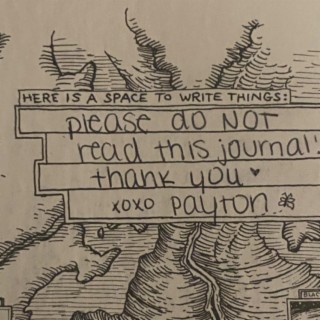 HERE IS A SPACE TO WRITE THINGS:
please do NOT
read this journal!
thank you ♥
xoxo payton